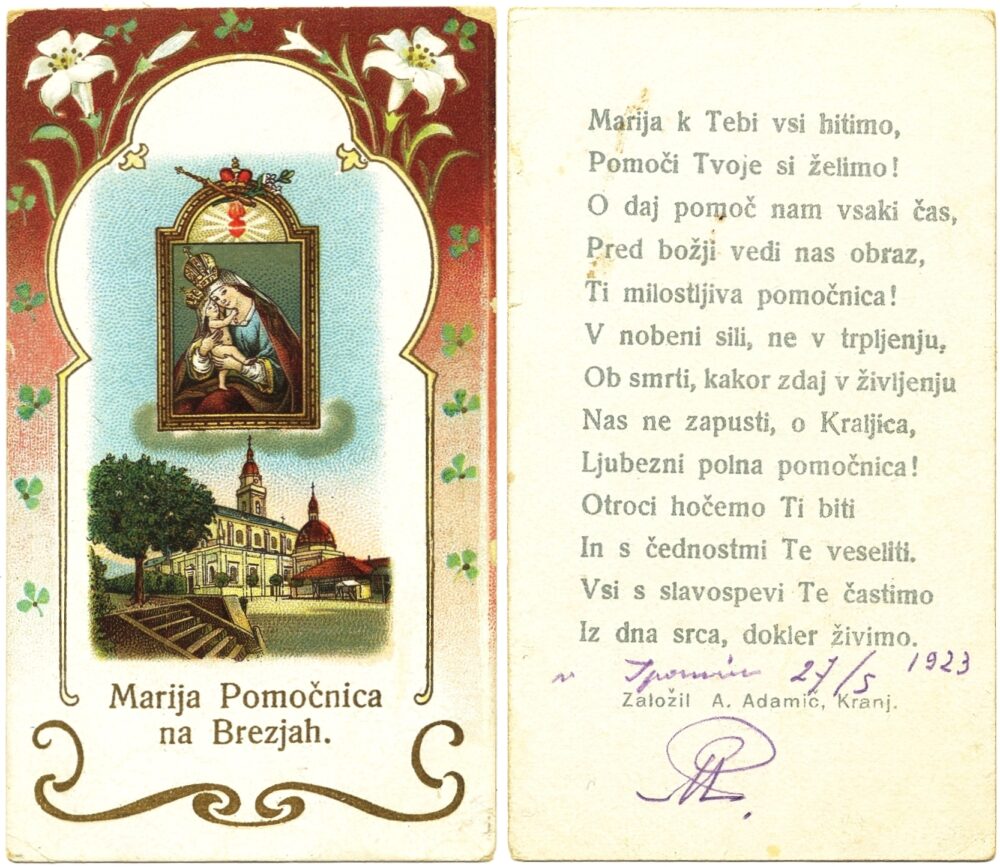 Marija Pomočnica
na Brezjah.
Marija k Tebi vsi hitimo,
Pomoči Tvoje si želimo!
O daj pomoč nam vsaki čas,
Pred božji vedi nas obraz,
Ti milostljiva pomočnica!
V nobeni sili, ne v trpljenju,
Ob smrti, kakor zdaj v življenju
Nas ne zapusti, o Kraljica,
Ljubezni polna pomočnica!
Otroci hočemo Ti biti
In s čednostmi Te veseliti.
Vsi s slavospevi Te častimo
Iz dna srca, dokler živimo.
v spomin 27/5 1923
Založil A. Adamič, Kranj.